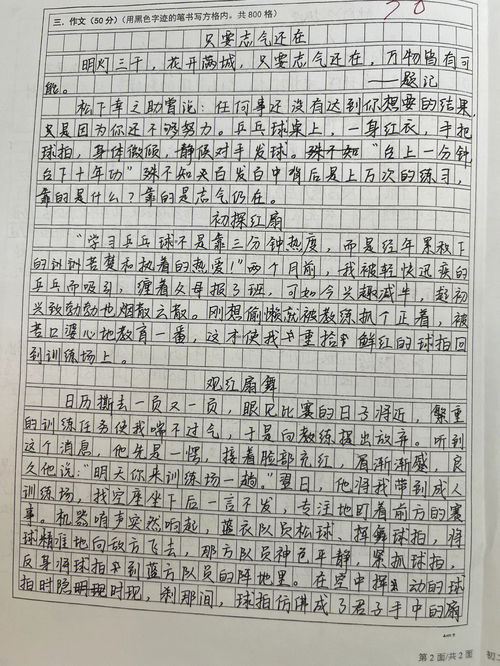 三、作文(50分)(用黑色字迹的笔书写方格内。共800格)
只要志气还在
明灯三千，花开满城，只要志气还在，万物皆有可
能。——题记
松下幸之助曾说：任何事还没有达到你想要的结果，
只是因为你还不够努力。乒乓球桌上，一身红衣，手把
球拍，身体微倾，静候对手发球。殊不知“台上一分钟，
台下十年功”殊不知百发百中背后是上万次的练习，
靠的是什么？靠的是志气仍在。
初探红扇
“学习乒乓球不是靠三分钟热度，而是经年累积下
的训训苦楚和执着的热爱！”两个月前，我被轻快迅疾的
乒乓而吸引，缠着父母报了班，可如今兴趣减半，起初
兴致勃勃也烟散云散。刚想偷懒就被教练抓个正着，被
苦口婆心地教育一番，这才使我重拾鲜红的球拍回
到训练场上。
观红扇舞
日历撕去一页又一页，眼见比赛的日子将近，繁重
的训练任务使我喘不过气，于是向教练提出放弃。听到
这个消息，他先是一愣，接着脸部充红，眉渐渐蹙，良
久他说：“明天你来训练场一趟。”翌日，他将我带到成人
训练场，找空座坐下后一言不发，专注地盯着前方的赛
事。机器哨声突然响起，蓝衣队员松球、挥舞球拍，将
球精准地向敌方飞去，那方队员神色平静，紧抓球拍，
反身将球拍到蓝方队员的阵地里。在空中挥动的球
拍时隐时现，刹那间，球拍仿佛成了君子手中的扇
第2页/共2页
初二